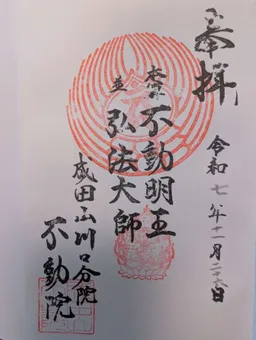 奉拝
令和七年十一月二十六日
本尊不動明王
並弘法大師
成田山川口分院
不動院